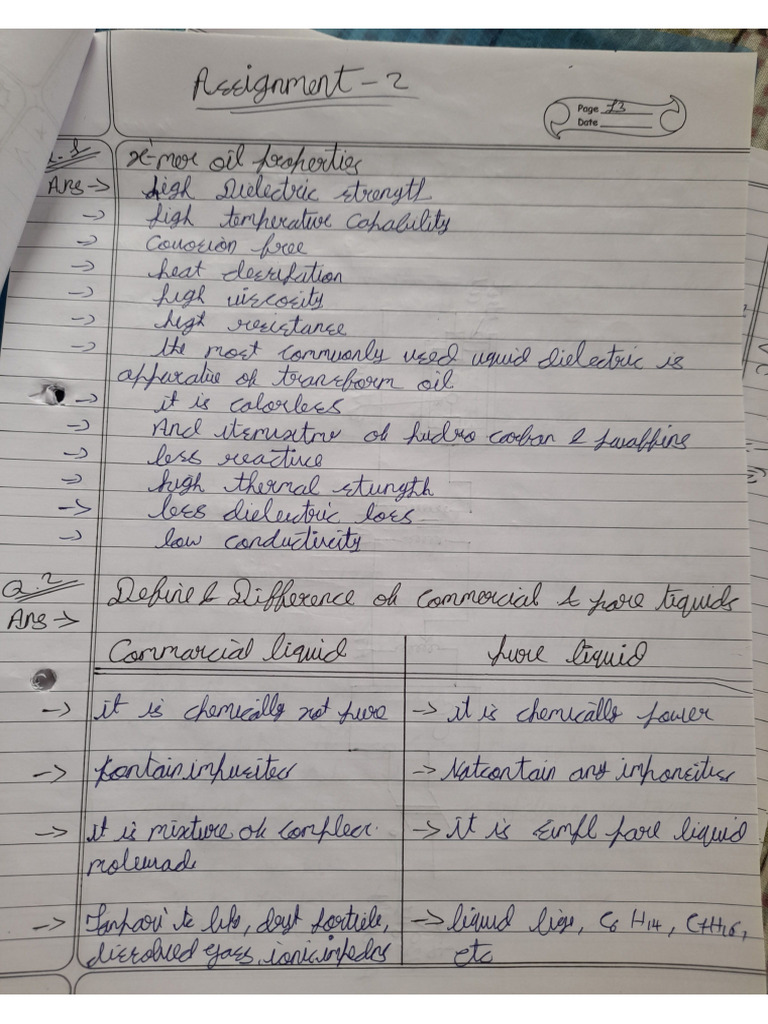 Assignment - 2
Page 13
Date
Q.1 x-mer oil properties
Ans → high Dielectric strength
→ high temperature capability
→ Corrosion free
→ heat dessipation
→ high viscosity
→ high resistance
→ the most commonly used liquid dielectric is
apparatus of transform oil.
→ it is colorless
→ And itemixture of hydro carbon & paraffins
→ less reactive
→ high thermal strength
→ less dielectric loss
→ low conductivity
Q.2 Define & Difference of commercial & pure liquids
Ans →
Commarcial liquid | pure liquid
→ it is chemically not pure | → it is chemically
→ Contain impurites | → Notcontain any
→ it is mixture of complex | → it is simpl pure liquid
→ dust particle, | → liquid like, C6 H14, C7H16,
dissolved gases, ionic | etc